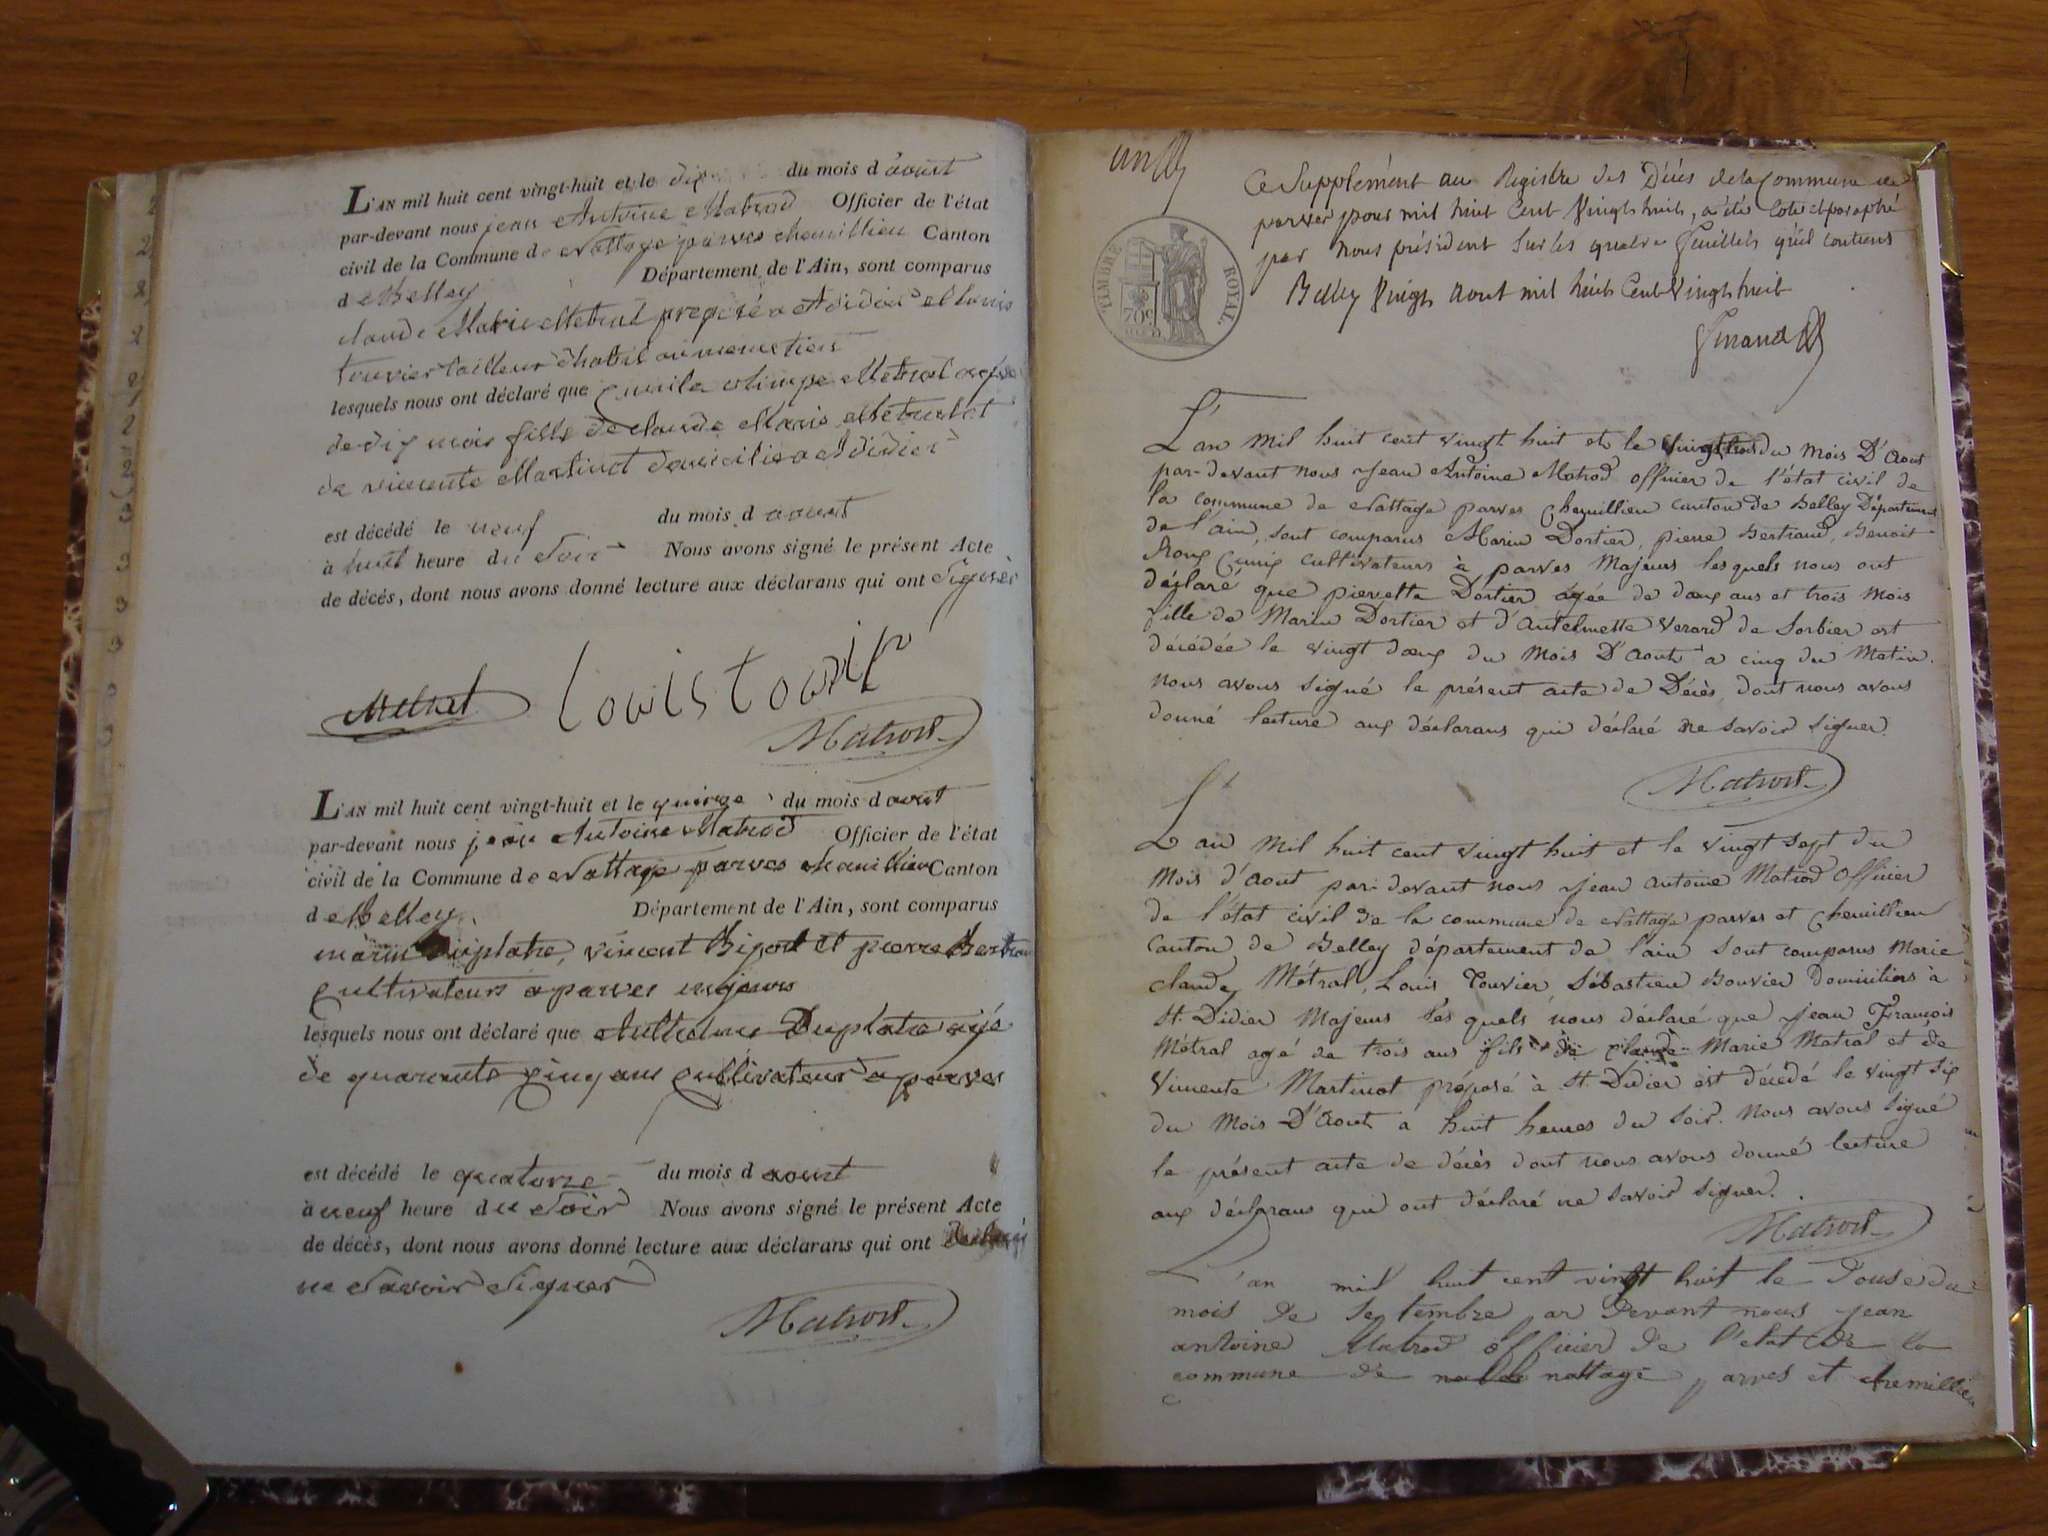 L'AN mil huit cent vingt-huit et le dix du mois d'aoust
par-devant nous jean Antoine Matrod Officier de l'état
civil de la Commune de Nattage parves chemillieu Canton
de Belley Département de l'Ain, sont comparus
claude Marie Metral preposé a St didier et louis
touvier tailleur d'habit
lesquels nous ont déclaré que olimpe Metral agée
de dix mois fille de claude Marie Metral et
de vincente Martinot domicilie a St didier
est décédé le neuf du mois d aoust
à huit heure du Soir Nous avons signé le présent Acte
de décès, dont nous avons donné lecture aux déclarans qui ont Signés
Metral Louis touvier
Matrod
L'AN mil huit cent vingt-huit et le quinze du mois d aoust
par-devant nous jean Antoine Matrod Officier de l'état
civil de la Commune de Nattage parves chemillieu Canton
de Belley Département de l'Ain, sont comparus
marin Duplatre, vincent Bigod et pierre Bertran
Cultivateurs a parves majeurs
lesquels nous ont déclaré que Anthelme Duplatre agé
de quarante Cinq ans Cultivateur a parves
est décédé le quatorze du mois d aoust
à neuf heure du Soir Nous avons signé le présent Acte
de décès, dont nous avons donné lecture aux déclarans qui ont Declaré
ne Savoir Signer
Matrod
un
Ce Supplément au Registre des Décès de la Commune de
parves pour mil huit Cent Vingt huit, a été Coté et paraphé
par Nous président Sur les quatre feuillets qu'il contient
Belley Vingt Aout mil huit Cent Vingt huit
TIMBRE ROYAL
70c
L'an mil huit cent vingt huit et le vingt trois du mois D'Aout
par-devant nous Jean Antoine Matrod officier de l'état civil de
la commune de Nattage parves Chemillieu canton de Belley Département
de l'ain, sont comparus Marin Dortier, pierre Bertrand, Benoit
Roux Cunix cultivateurs à parves Majeurs lesquels nous ont
déclaré que pierrette Dortier agée de deux ans et trois mois
fille de Marin Dortier et d'Antelmette Verard de Sorbier est
décédée le vingt deux du mois D'Aout a cinq du Matin.
nous avons signé le présent acte de Décès, dont nous avons
donné lecture aux déclarans qui déclaré ne savoir signer.
Matrod
L'an mil huit cent vingt huit et le vingt sept du
Mois d'Aout par-devant nous Jean Antoine Matrod officier
de l'état civil de la commune de Nattage parves et Chemillieu
Canton de Belley département de l'ain sont comparus Marie
claude Métral, Louis Touvier, Sébastien Bouvier Domiciliers à
St. Didier Majeurs les quels nous déclaré que Jean François
Métral agé de trois ans fils de Claude Marie Matral et de
Vincente Martinot préposé à St. Didier est décédé le vingt six
du Mois D'Aout à huit heures du soir. Nous avons signé
le présent acte de décès dont nous avons donné lecture
aux déclarans qui ont déclaré ne savoir signer.
Matrod
L'an mil huit cent vingt huit le Douse du
mois de Septembre par Devant nous jean
antoine Matrod officier de l'etat de la
commune de nattage parves et chemillieu